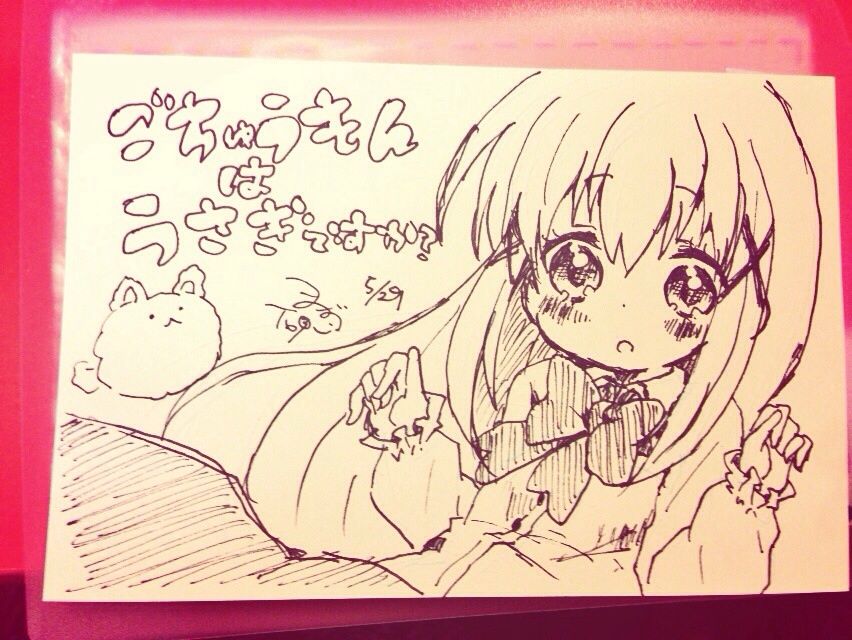 ごちゅうもん
は
うさぎですか?
5/29